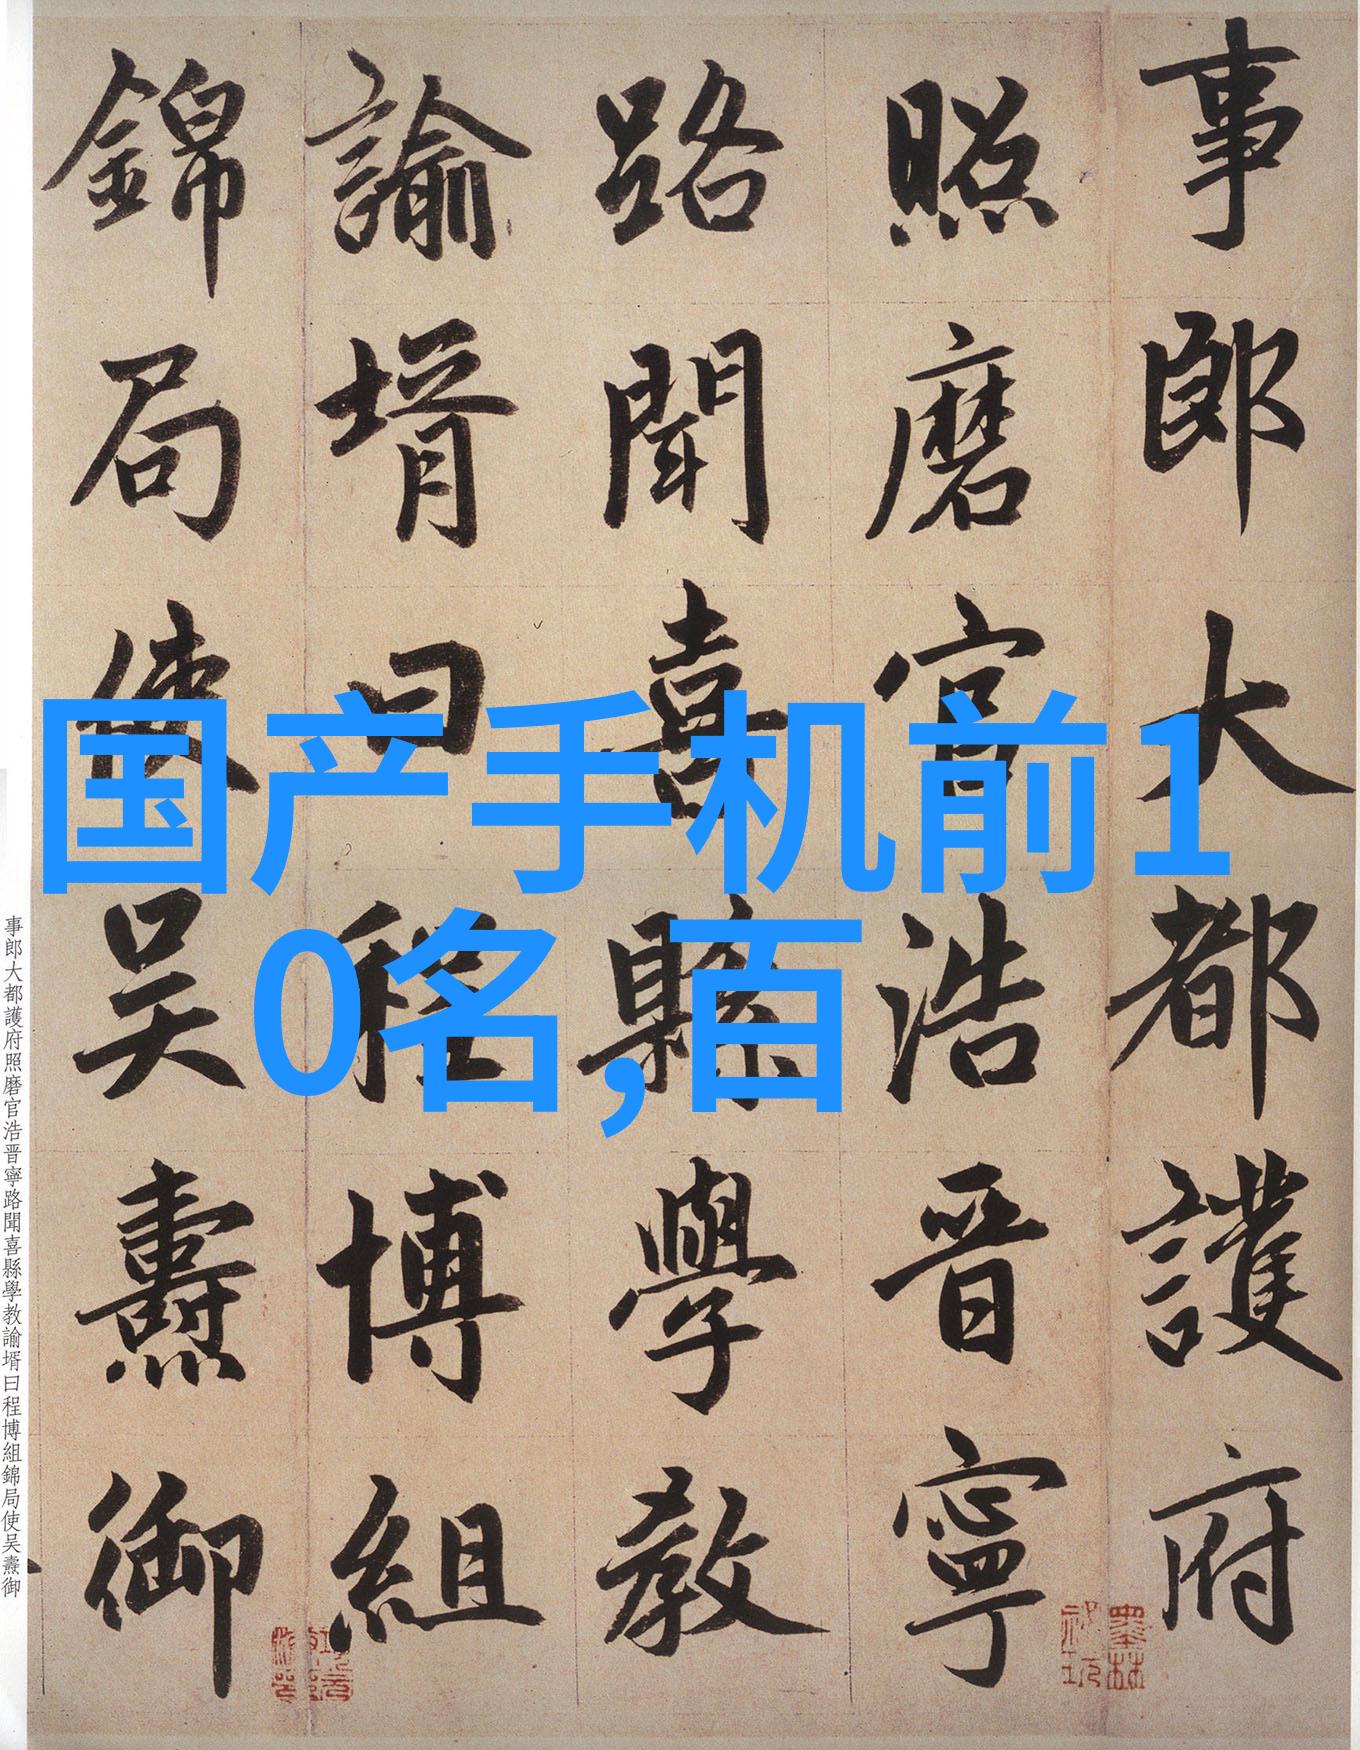 事郎大都護府
照磨官浩晋寧
路聞喜縣學教
諭壻曰程博組
錦局使吴燾御
国产手机前1
0名,百
事郎大都護府照磨官浩晋寧路聞喜縣學教諭壻曰程博組錦局使吴燾御